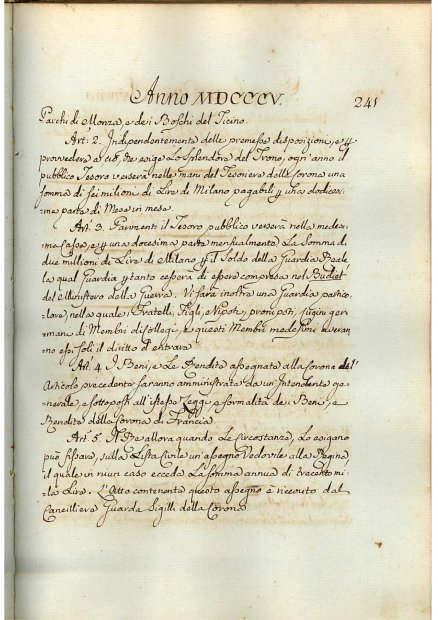 Anno MDCCCV. 241
Parchi di Monza, e dei Boschi del Ticino.
Art. 2. Indipendentemente delle premesse disposizioni, e p
provvedere a ciò, che esige Lo Splendore del Trono, ogn'anno il
pubblico Tesoro verserà nelle mani del Tesoriere della Corona una
somma di sei milioni di Lire di Milano pagabili p una dodicesi-
ma parte di Mese in mese.
Art. 3. Parimenti il Tesoro pubblico verserà nella medesi-
ma Cassa, e p una docesima parte mensualmente La Somma di
due millioni di Lire di Milano p il Soldo della Guardia Reale
la qual Guardia p tanto cesserà di essere compresa nel Budjet
del Ministero della Guerra. Vi sarà inoltre una Guardia partico-
lare, nella quale i Fratelli, Figli, e Nipoti, pronipoti, cugini ger-
mani di Membri di Collegi, e questi Membri medesimi avran-
no essi soli il diritto d'entrare
Art. 4. I Beni, e Le Rendite assegnate alla Corona dell'
Articolo precedente saranno amministrate da un'Intendente ge-
nerale, e sottoposti all'istesse Leggi e formalità dei Beni, e
Rendite della Corona di Francia
Art. 5. Il Re allora quando Le Circostanze Lo esigano
può fissare, sulla Lista Civile un'assegno Vedovile alla Regina
il quale in niun caso ecceda La somma annua di trecentomi-
la Lire. L'Atto contenente questo assegno è ricevuto dal
Cancelliere Guarda Sigilli della Corona